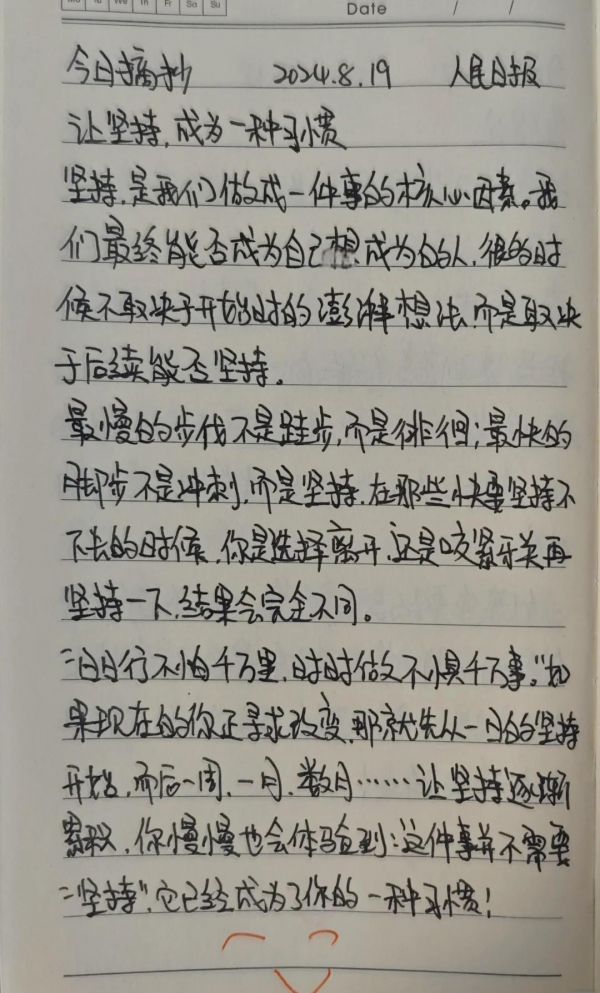 Mo Tu We Th Fr Sa Su
Date / /
今日摘抄 2024.8.19 人民日报
让坚持,成为一种习惯
坚持,是我们做成一件事的核心因素。我
们最终能否成为自己想成为的人,很的时
候不取决于开始时的澎湃想法,而是取决
于后续能否坚持。
最慢的步伐不是跬步,而是徘徊;最快的
脚步不是冲刺,而是坚持,在那些快要坚持不
下去的时候,你是选择离开,还是咬紧牙关再
坚持一下,结果会完全不同。
“日日行不怕千万里,时时做不惧千万事。”如
果现在的你正寻求改变,那就先从一日的坚持
开始,而后一周、一月、数月……让坚持逐渐
累积,你慢慢也会体验到:这件事并不需要
“坚持”,它已经成为了你的一种习惯!